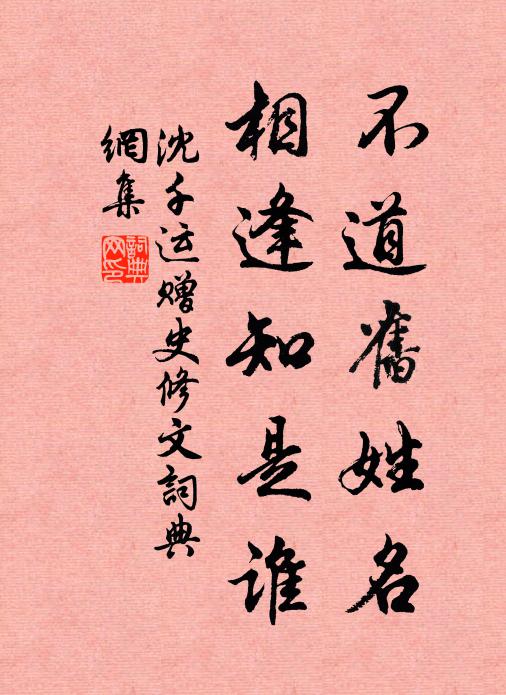 不道舊姓名
相逢知是誰
沈千运贈史修文詞典
網集
詞典
网印